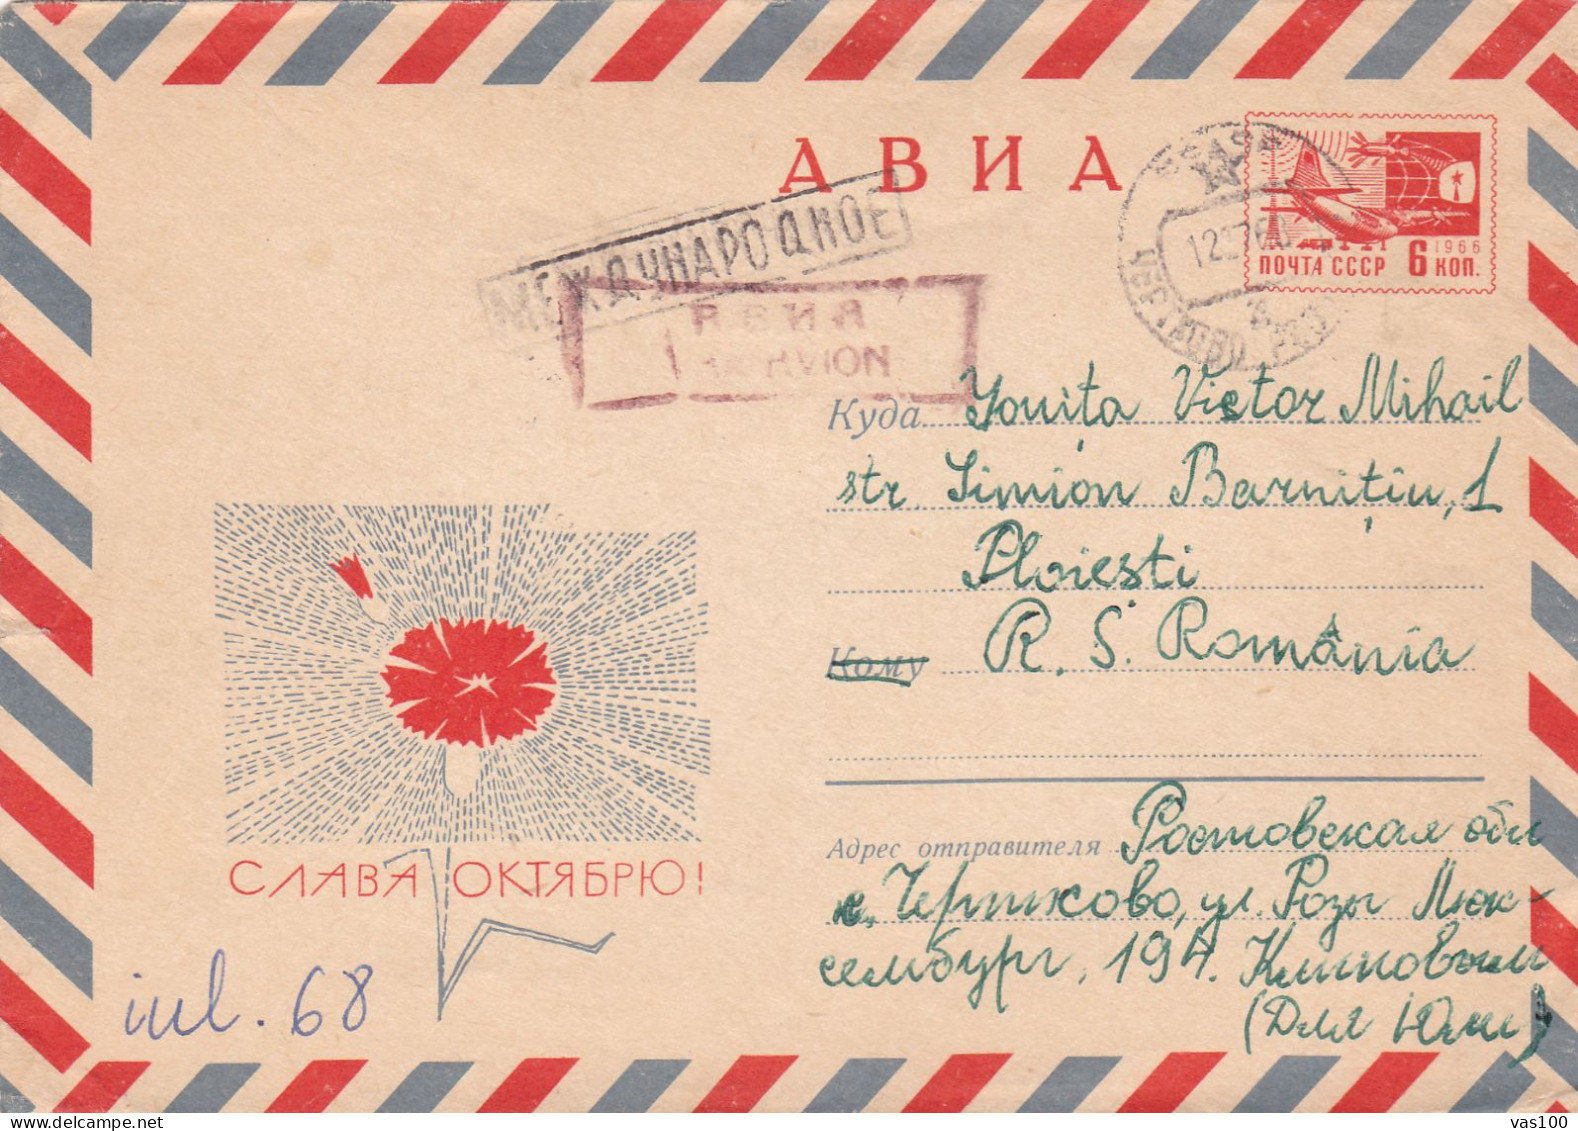 АВИА
МЕЖДУНАРОДНОЕ
АВИА
PAR AVION
1966
ПОЧТА СССР 6 КОП.
Куда Ionita Victor Mihail
str. Simion Barnițiu, 1
Ploiesti
Кому R. S. România
СЛАВА ОКТЯБРЮ!
Адрес отправителя Ростовская обл
с. Чертково, ул. Розы Люк-
сембург, 194. Климовым
(Для Юли)
iul. 68
vas100